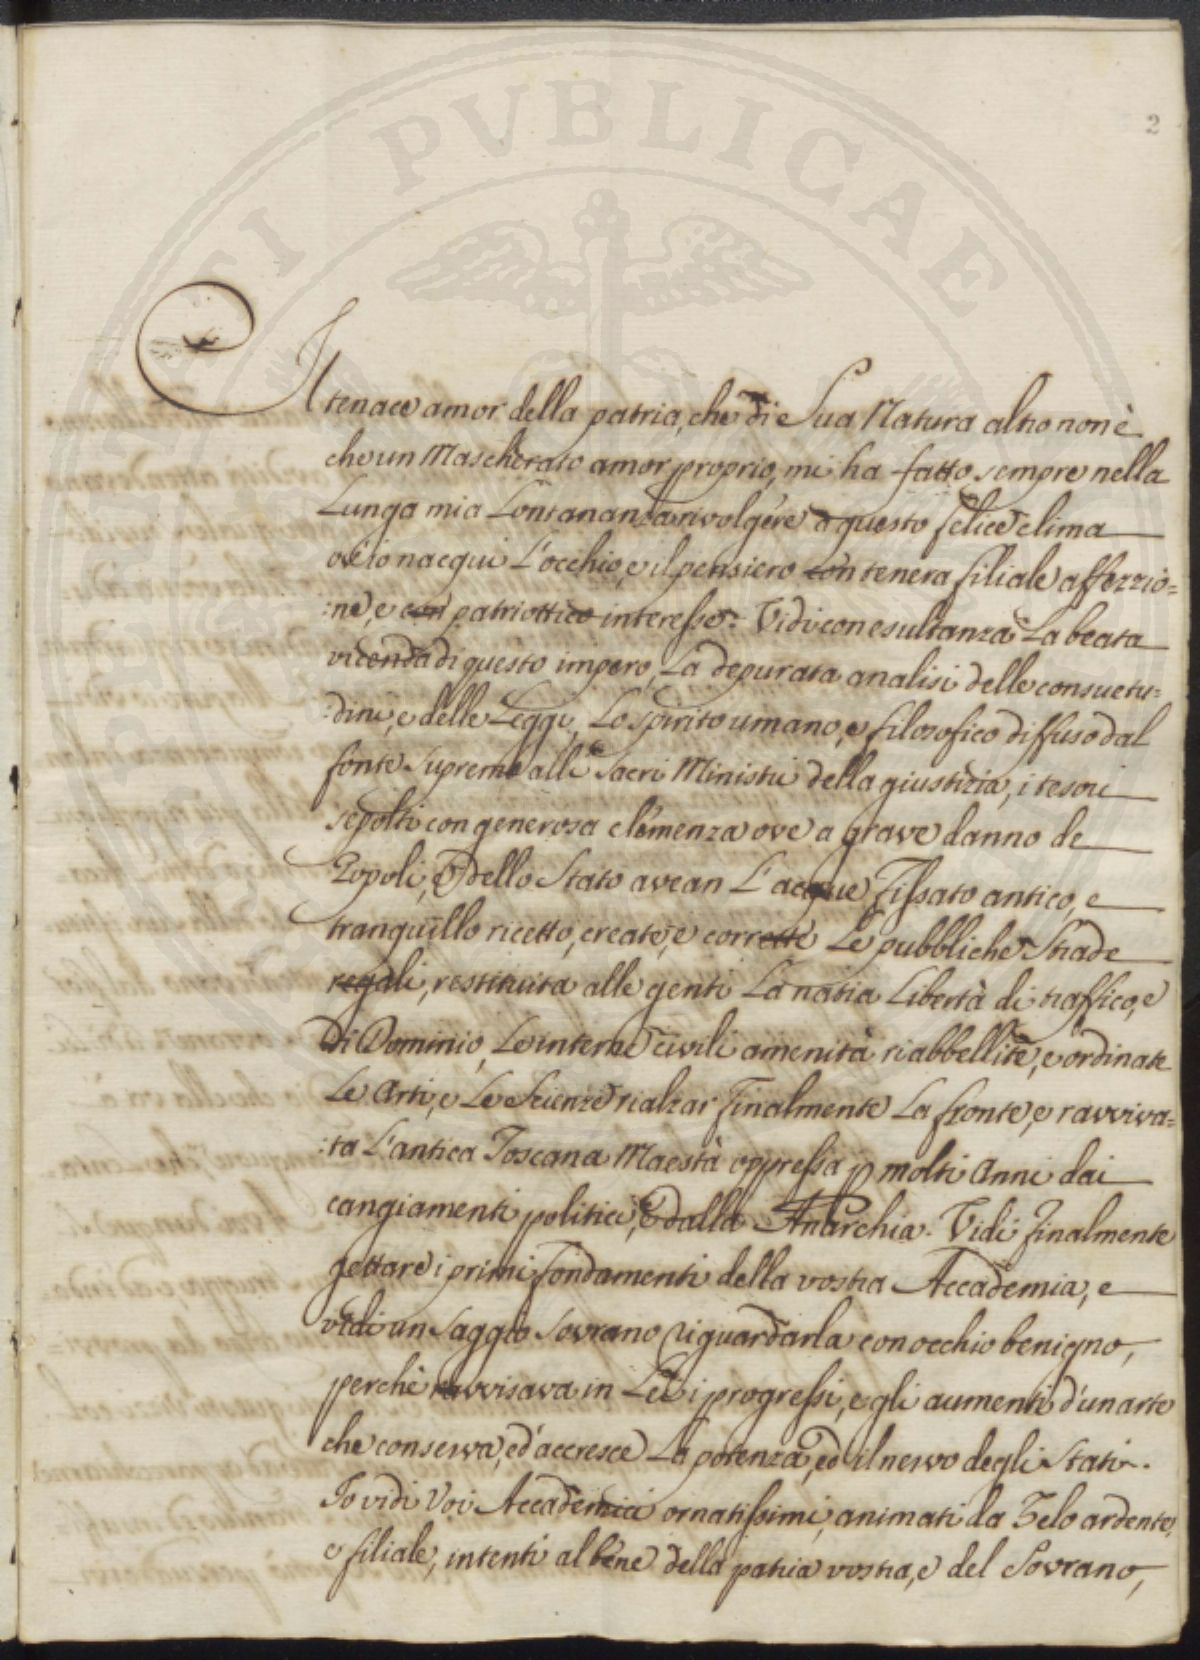 2
Il tenace amor della patria, che di Sua Natura altro non è
che un Mascherato amor proprio, mi ha fatto sempre nella
Lunga mia Lontananza rivolgere a questo felice clima
ov'io nacqui L'occhio, e il pensiero con tenera filiale affezzio=
:ne, e con patriottico interesse. Vidi con esultanza La beata
vicenda di questo impero, La depurata analisi delle consuetu=
:dini, e delle Leggi, Lo spirito umano, e filosofico diffuso dal
fonte Supremo alli Sacri Ministri della giustizia, i tesori
sepolti con generosa clemenza ove a grave danno de
Popoli, e dello Stato avean L'acque Fissato antico, e
tranquillo ricetto, create, e corrette Le pubbliche Strade
regali, restituita alle genti La natia Libertà di traffico, e
di Dominio, Le interne civili amenità riabbellite, e ordinate
Le Arti, e Le Scienze rialzar Finalmente La fronte, e ravviva=
:ta L'antica Toscana Maestà oppressa p molti Anni dai
cangiamenti politici, e dalla Anarchia. Vidi Finalmente
gettare i primi fondamenti della vostra Accademia, e
vidi un Saggio Sovrano riguardarla con occhio benigno,
perchè ravvisava in Lei i progressi, e gli aumenti d'un arte
che conserva, ed accresce La potenza, ed il nervo degli Stati.
Io vidi Voi Accademici ornatissimi, animati da Zelo ardente,
e filiale, intenti al bene della patria vostra, e del Sovrano,